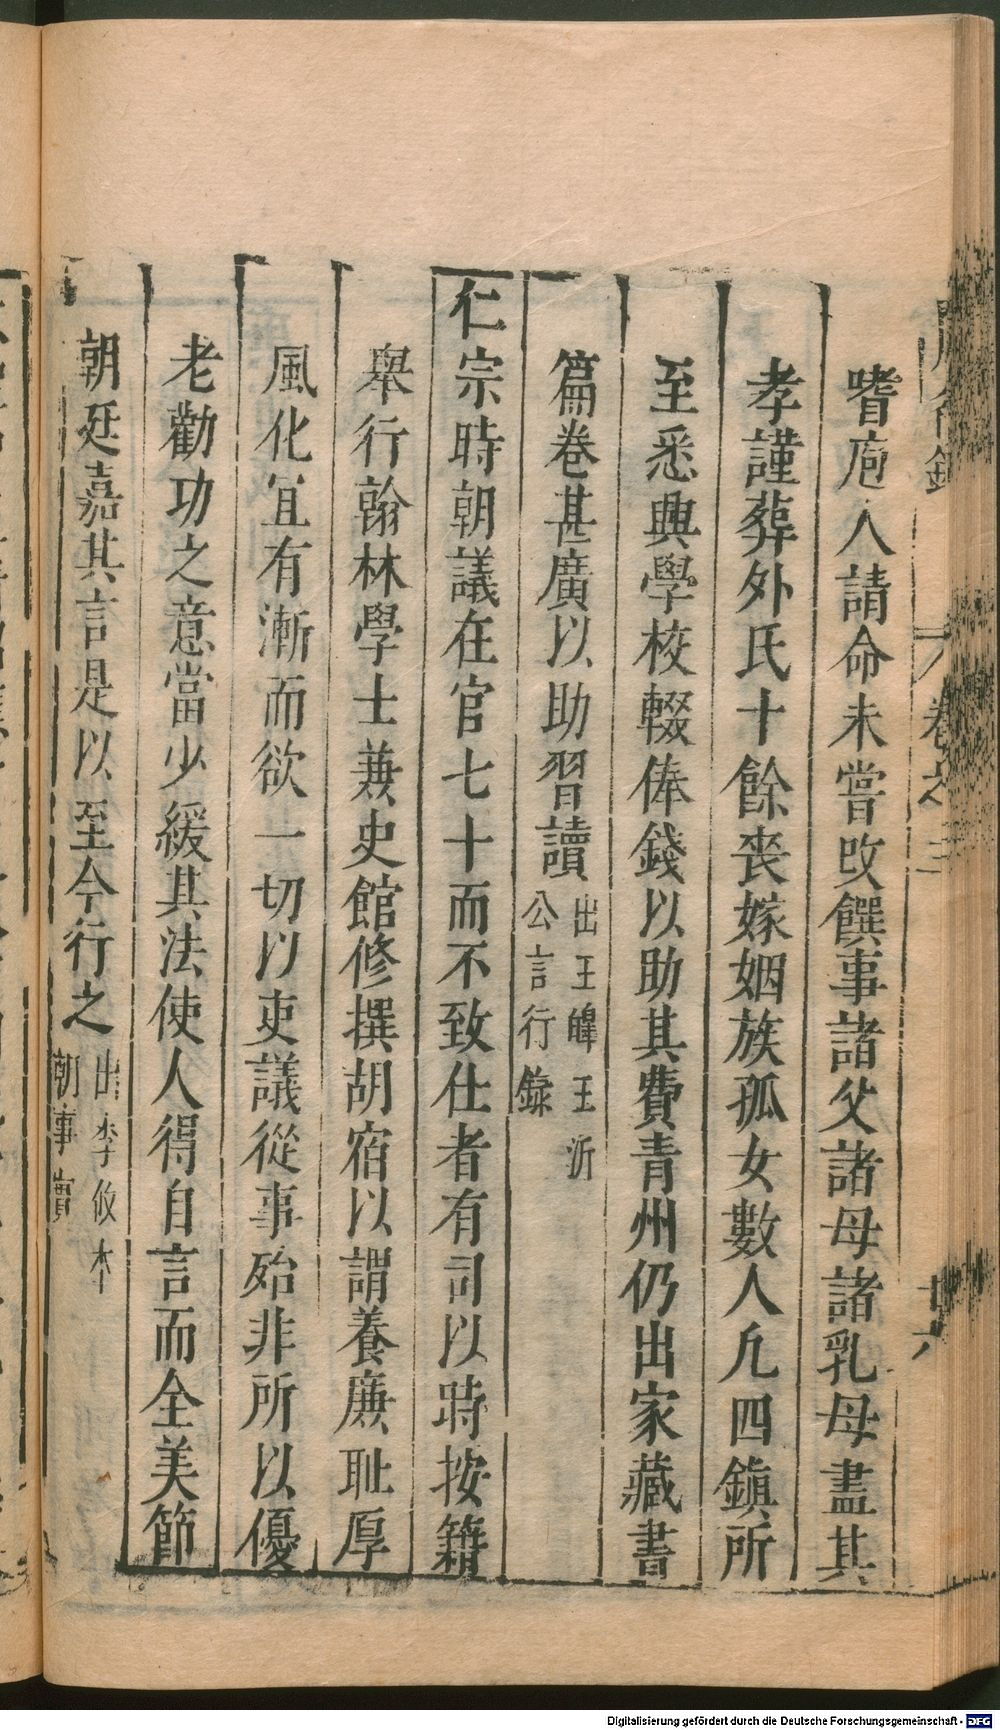 嗜庖人請命未嘗改饌事諸父諸母諸乳母盡其
孝謹葬外氏十餘喪嫁姻族孤女數人凡四鎮所
至悉興學校輟俸錢以助其費青州仍出家藏書
篇卷甚廣以助習讀出王皥王沂
公言行錄
仁宗時朝議在官七十而不致仕者有司以時按籍
舉行翰林學士兼史館修撰胡宿以謂養廉耻厚
風化宜有漸而欲一切以吏議從事殆非所以優
老勸功之意當少緩其法使人得自言而全美節
朝廷嘉其言是以至今行之出李攸本
朝事實
卷之三
十六
Digitalisierung gefördert durch die Deutsche Forschungsgemeinschaft - DFG